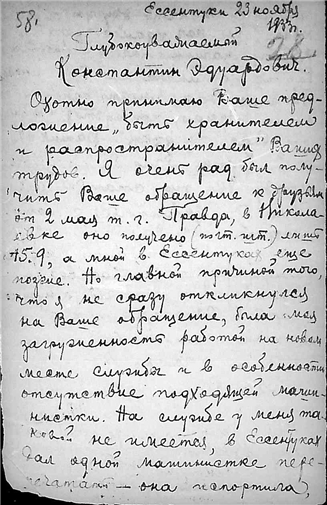 58.
Ессентуки 23 ноября
1933г.
Глубокоуважаемой
Константин Эдуардович.
Охотно принимаю Ваше пред-
ложение „быть хранителем
и распространителем" Ваших
трудов. Я очень рад был полу-
чить Ваше обращение к друзьям
от 2 мая т. г. Правда, в Никола-
евке оно получено (почт. шт.) лишь
15.9, а мной в Ессентуках еще
позже. Но главной причиной того,
что я не сразу откликнулся
на Ваше обращение, была моя
загруженность работой на новом
месте службы и в особенности
отсутствие подходящей маши-
нистки. На службе у меня та-
ковой не имеется, в Ессентуках
дал одной машинистке пере-
печатать — она испортила,